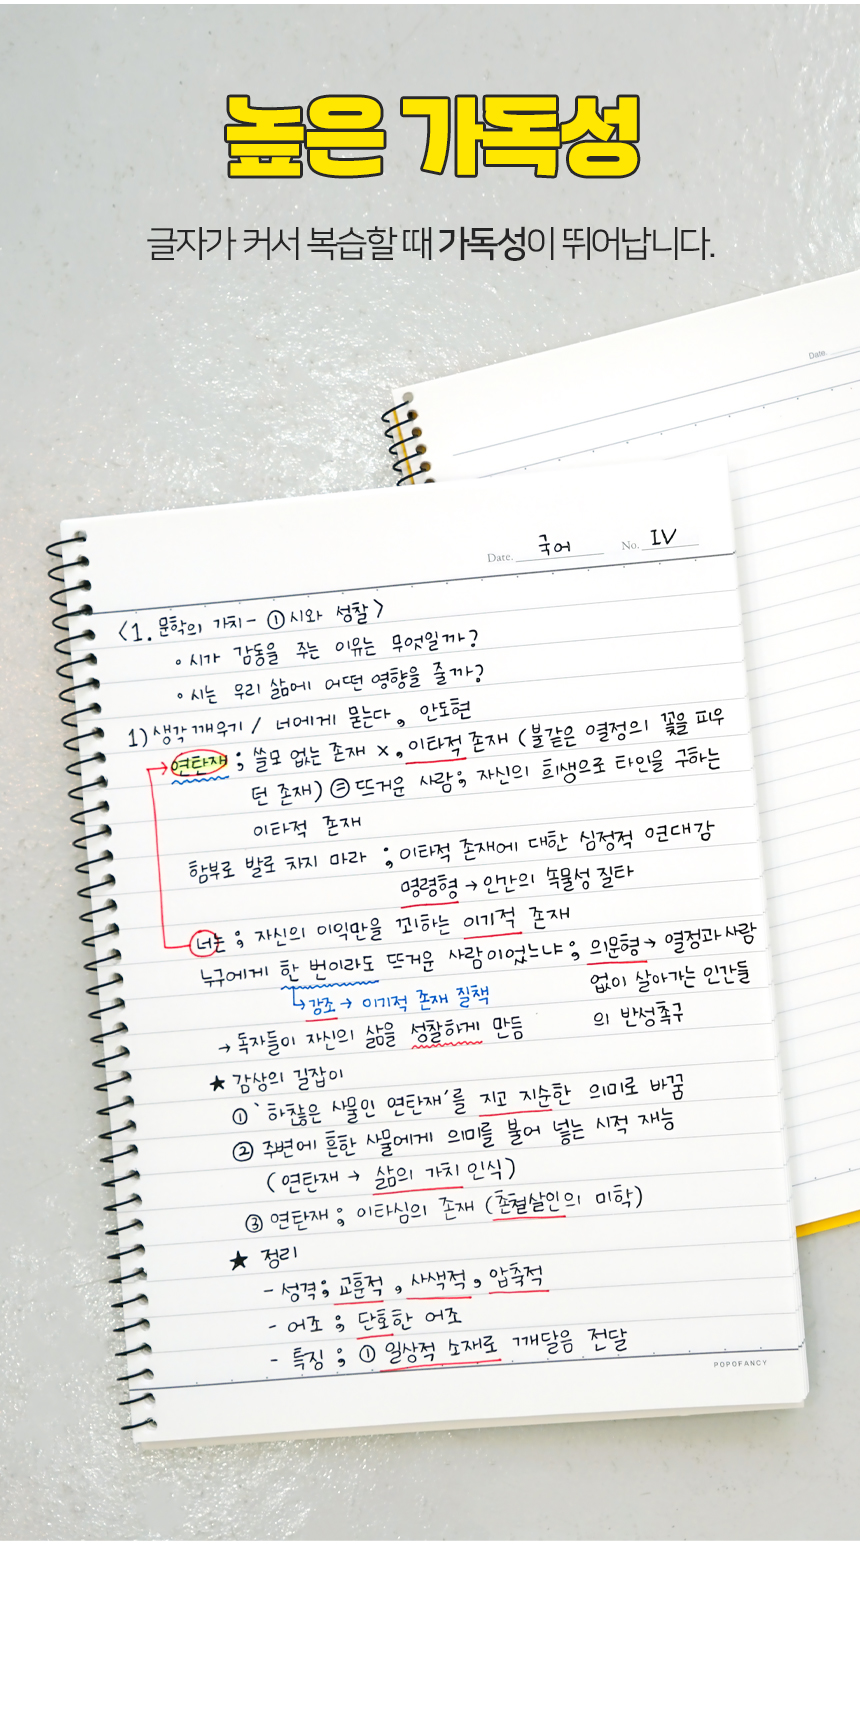 높은 가독성
글자가 커서 복습할 때 가독성이 뛰어납니다.
Date.
Date. 국어 No. IV
<1. 문학의 가치 - ① 시와 성찰>
◦ 시가 감동을 주는 이유는 무엇일까?
◦ 시는 우리 삶에 어떤 영향을 줄까?
1) 생각 깨우기 / 너에게 묻는다, 안도현
연탄재 ; 쓸모 없는 존재 x, 이타적 존재 (불같은 열정의 꽃을 피우
던 존재) = 뜨거운 사람; 자신의 희생으로 타인을 구하는
이타적 존재
함부로 발로 차지 마라 ; 이타적 존재에 대한 심정적 연대감
명령형 → 인간의 속물성 질타
너는 ; 자신의 이익만을 꾀하는 이기적 존재
누구에게 한 번이라도 뜨거운 사람이었느냐 ; 의문형 → 열정과 사랑
없이 살아가는 인간들
의 반성촉구
↳ 강조 → 이기적 존재 질책
→ 독자들이 자신의 삶을 성찰하게 만듬
★ 감상의 길잡이
① '하찮은 사물인 연탄재'를 지고 지순한 의미로 바꿈
② 주변에 흔한 사물에게 의미를 불어 넣는 시적 재능
(연탄재 → 삶의 가치 인식)
③ 연탄재 ; 이타심의 존재 (촌철살인의 미학)
★ 정리
- 성격 ; 교훈적, 사색적, 압축적
- 어조 ; 단호한 어조
- 특징 ; ① 일상적 소재로 깨달음 전달
POPOFANCY